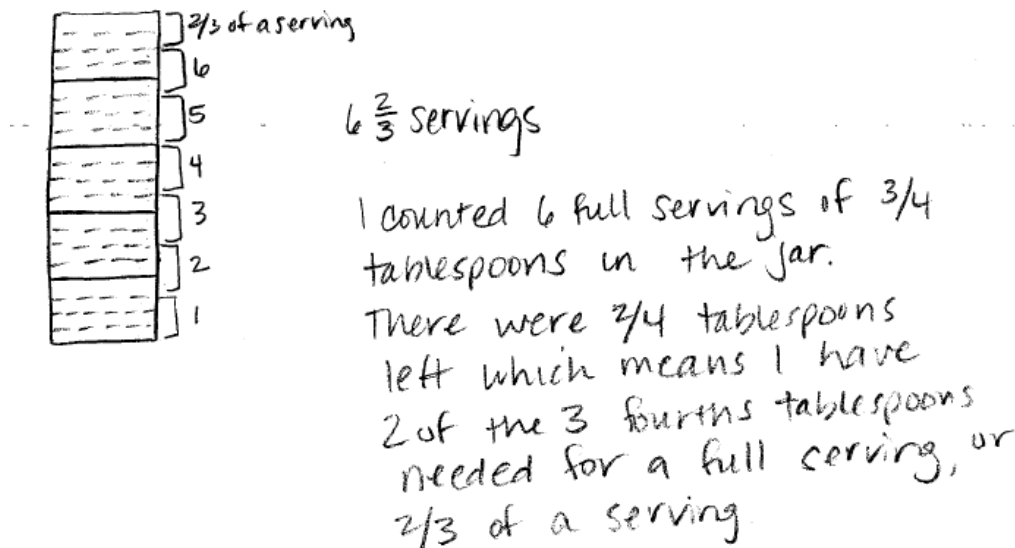 2/3 of a serving
6
5
4
3
2
1
6 2/3 servings
I counted 6 full servings of 3/4
tablespoons in the jar.
There were 2/4 tablespoons
left which means I have
2 of the 3 fourths tablespoons
needed for a full serving, or
2/3 of a serving